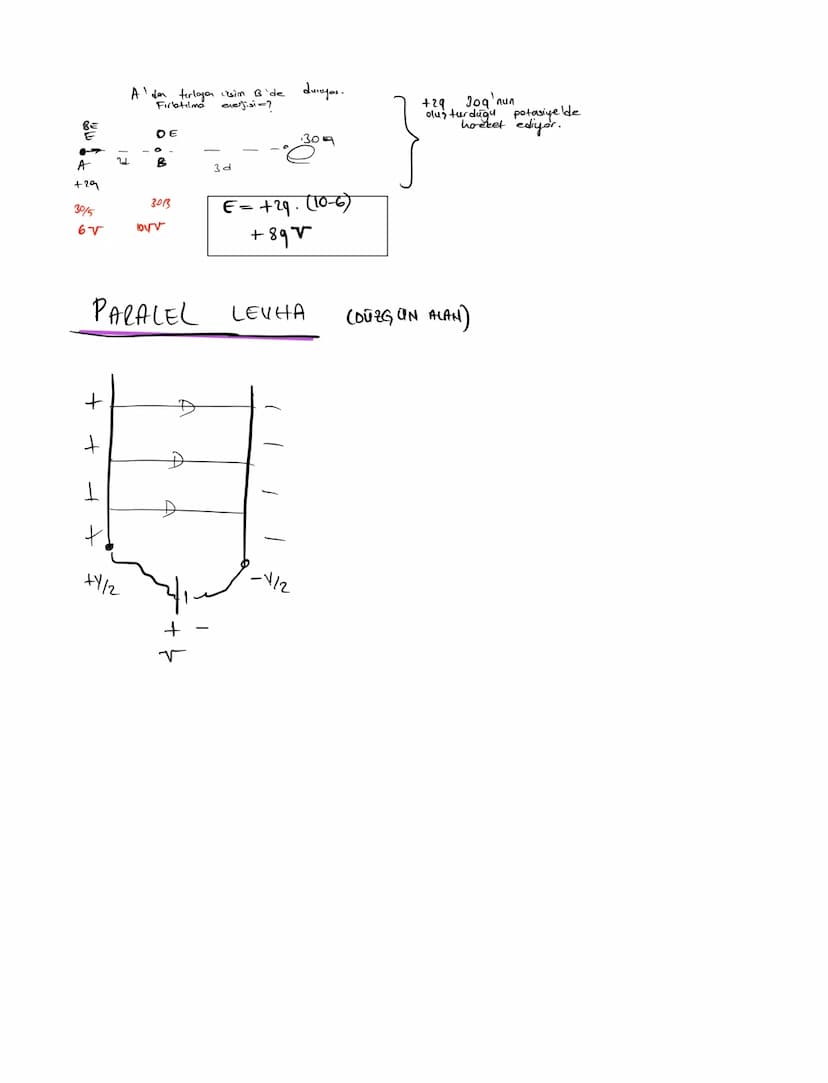 A'dan fırlayan cisim B'de duruyor.
Fırlatılma enerjisi=?
+2q 30q'nun
oluşturduğu potasiyelde
hareket ediyor.
8E
E
0E
30q
A
2d
B
3d
+2q
30/5
30/3
6V
10V
E = +2q. (10-6)
+8qV
PARALEL LEVHA (DÜZGÜN ALAN)
+ -
+ -
+ -
+ -
+V/2
-V/2
+ -
V